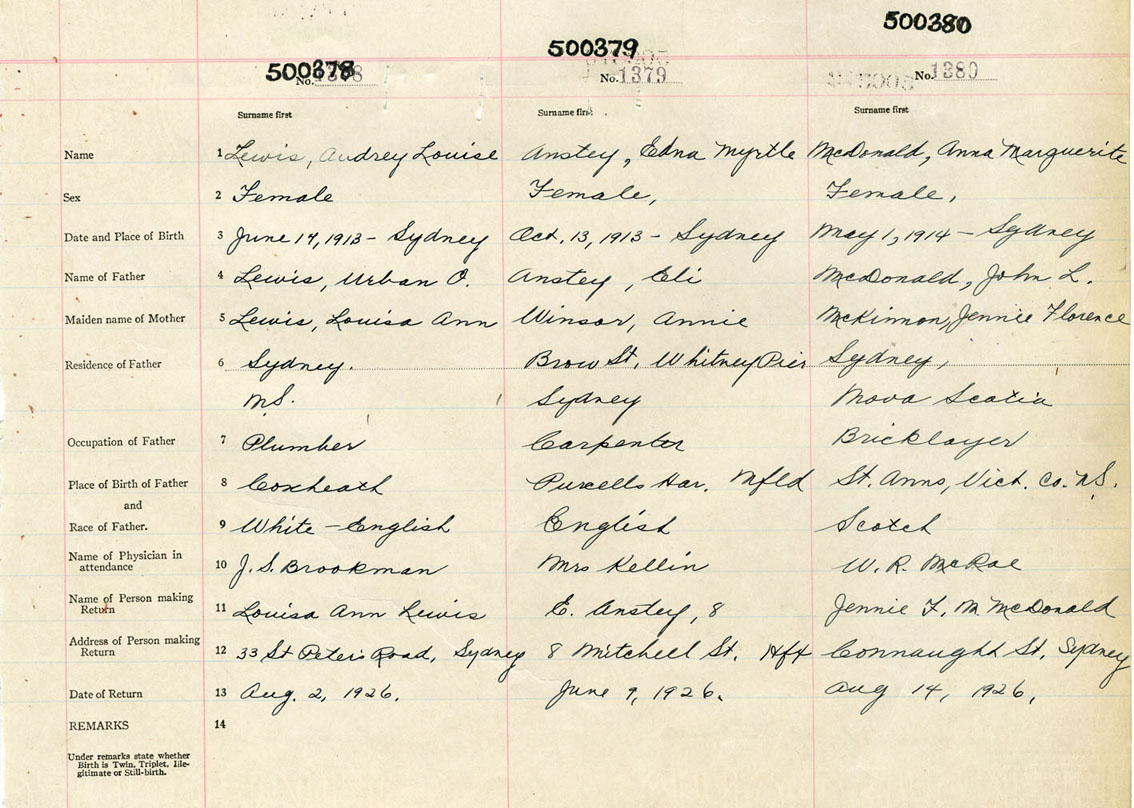 500378 500379 500380
No. 1378 No. 1379 No. 1380
Surname first Surname first Surname first
Name 1 Lewis, Audrey Louise Anstey, Edna Myrtle McDonald, Anna Marguerite
Sex 2 Female Female, Female,
Date and Place of Birth 3 June 14, 1913 - Sydney Oct. 13, 1913 - Sydney May 1, 1914 - Sydney
Name of Father 4 Lewis, Urban O. Anstey, Eli McDonald, John L.
Maiden name of Mother 5 Lewis, Louisa Ann Winsor, Annie McKinnon, Jennie Florence
Residence of Father 6 Sydney. Brow St, Whitney Pier Sydney,
N.S. Sydney Nova Scotia
Occupation of Father 7 Plumber Carpenter Bricklayer
Place of Birth of Father 8 Coxheath Purcells Har. Nfld St. Anns, Vict. Co. N.S.
and
Race of Father. 9 White - English English Scotch
Name of Physician in attendance 10 J. S. Brookman Mrs Kellin W. R. McRae
Name of Person making Return 11 Louisa Ann Lewis E. Anstey, 8 Jennie F. M. McDonald
Address of Person making Return 12 33 St Peters Road, Sydney 8 Mitchell St. Hfx Connaught St, Sydney
Date of Return 13 Aug. 2, 1926. June 9, 1926. Aug 14, 1926,
REMARKS 14
Under remarks state whether
Birth is Twin, Triplet, Ille-
gitimate or Still-birth.